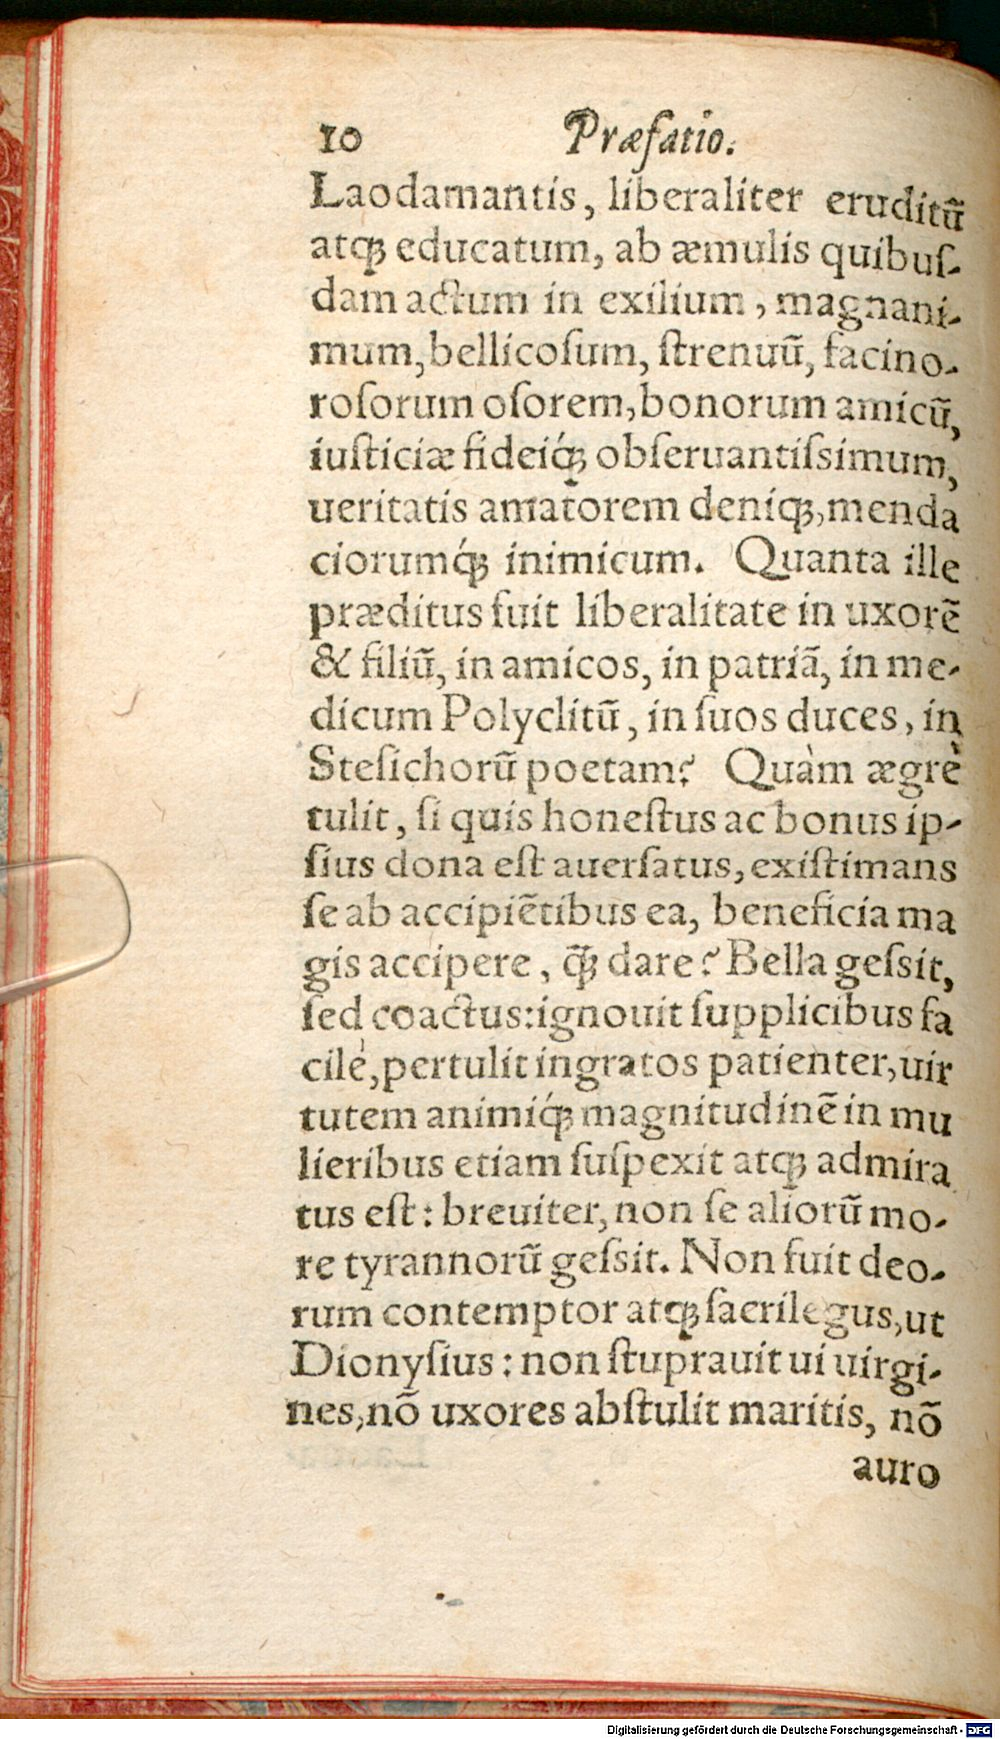 10 Præfatio.
Laodamantis, liberaliter eruditũ
atq́ꝫ educatum, ab æmulis quibuſ-
dam actum in exilium, magnani-
mum, bellicoſum, ſtrenuũ, facino-
roſorum oſorem, bonorum amicũ,
iuſticiæ fideiq́ꝫ obſeruantiſsimum,
ueritatis amatorem deniqꝫ, menda
ciorumq́ꝫ inimicum. Quanta ille
præditus fuit liberalitate in uxorẽ
& filiũ, in amicos, in patriã, in me-
dicum Polyclitũ, in ſuos duces, in
Steſichorũ poetam? Quàm ægrè
tulit, ſi quis honeſtus ac bonus ip-
ſius dona eſt auerſatus, exiſtimans
ſe ab accipiẽtibus ea, beneficia ma
gis accipere, q̃ꝫ dare? Bella geſsit,
ſed coactus: ignouit ſupplicibus fa
cilè, pertulit ingratos patienter, uir
tutem animiq́ꝫ magnitudinẽ in mu
lieribus etiam ſuſpexit atqꝫ admira
tus eſt: breuiter, non ſe aliorũ mo-
re tyrannorũ geſsit. Non fuit deo-
rum contemptor atqꝫ ſacrilegus, ut
Dionyſius: non ſtuprauit ui uirgi-
nes, nõ uxores abſtulit maritis, nõ
auro
Digitalisierung gefördert durch die Deutsche Forschungsgemeinschaft - DFG